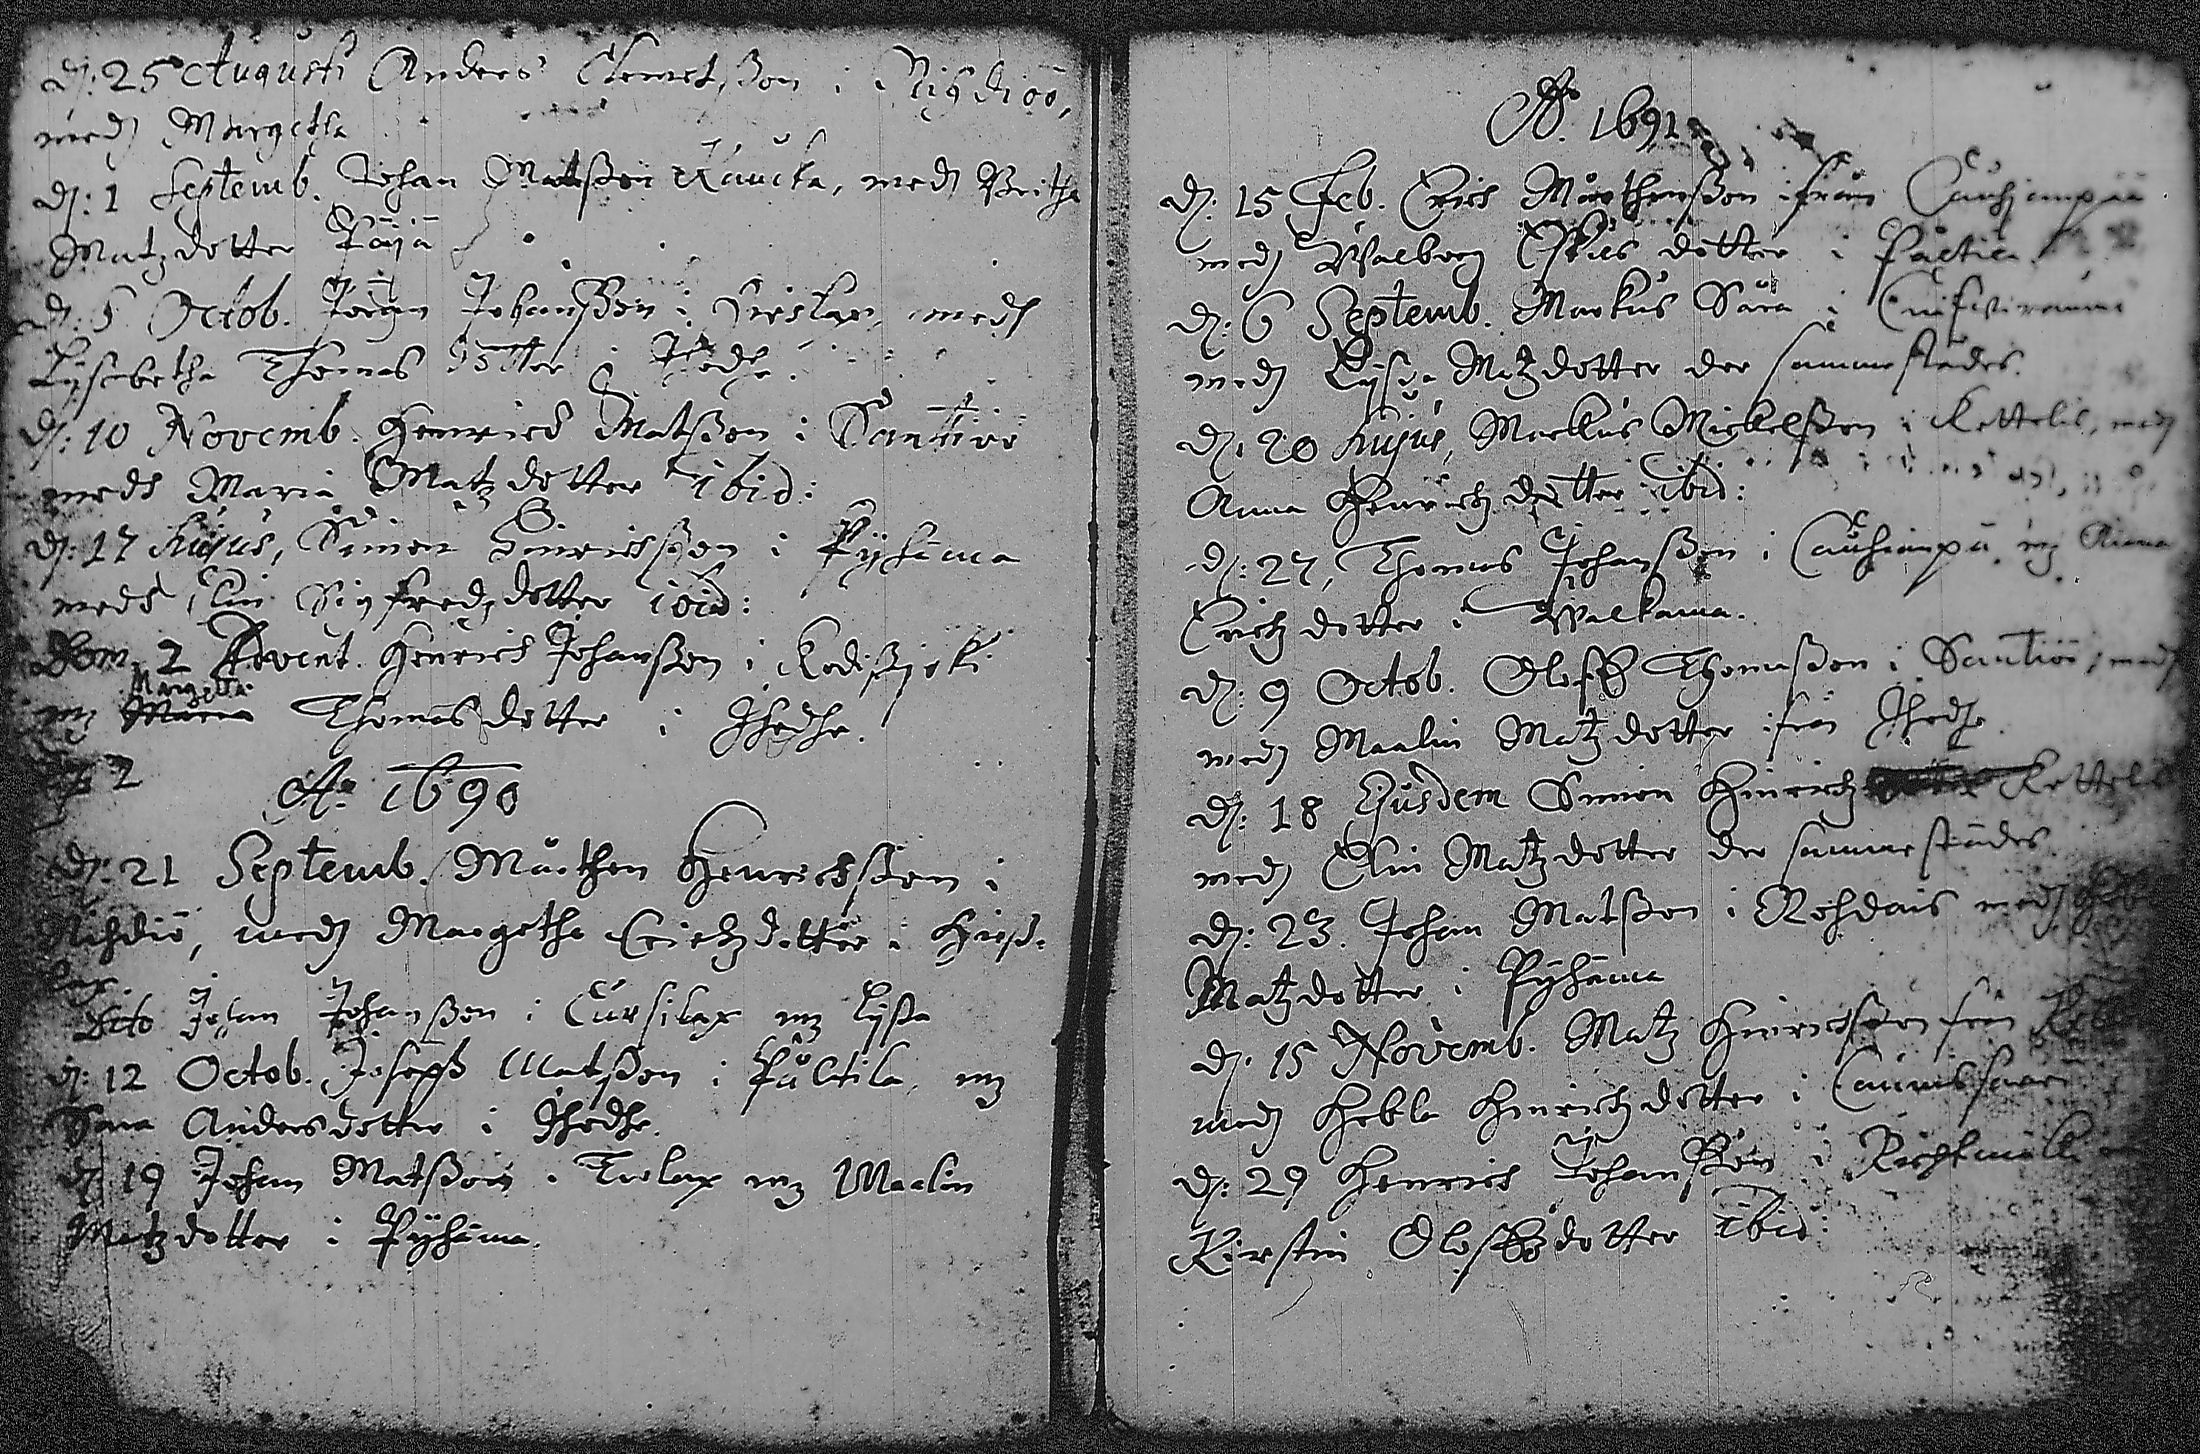 d: 25 Augusti Anders Clemetsson i Nihdiöö,
medh Margetha
d: 1 Septemb. Johan Matsson Kaucka, medh Britha
Matz dotter Päijä
d: 5 Octob. Jören Johansson i Hirslax, medh
Lijsabetha Thomas dotter i Ihodhe.
d: 10 Novemb. Henrich Matsson i Santtiö
medh Maria Matz dotter ibid:
d: 17 hujus, Simon Hinrichsson i Pyhäma
medh Elin Sigfredz dotter ibid:
Dom. 2 Advent. Henrich Johansson i Rodisjocki
mz Margetta Maria Thomas dotter i Ihodhe.
2
Ao 1690
d: 21 Septemb. Mårthen Henrichsson i
Nihdiö, medh Margetha Erichz dotter i Hirss-
lax.
Dito Johan Johansson i Cursilax mz Lijsa
d: 12 Octob. Joseph Matsson i Påltila, mz
Sara Andersdotter i Ihodhe.
d: 19 Johan Matsson i Trelax mz Maalin
Matz dotter i Pyhäma.
Ao. 1691
d: 15 Feb. Erich Mårthensson ifrån Cauhianpää
medh Walborg Eskils dotter i Påltila
d: 6 Septemb. Markus Sara i
medh Lijsa Matz dotter der sammastädes.
d: 20 hujus, Markus Mickelsson i Kettelis, medh
Anna Henrichz dotter ibid:
d: 27, Thomas Johansson i Cauhianpä mz Anna
Erichz dotter i Walkama.
d: 9 Octob. Oloff Thomasson i Santiöö, medh
medh Maalin Matz dotter ifrån Ihodhe
d: 18 Ejusdem Simon Hinrichz Kettelis
medh Elin Matz dotter der sammastädes.
d: 23. Johan Matsson i Rohdais medh
Matz dotter i Pyhäma
d: 15 Novemb. Matz Hinrichsson från
medh Hebla Hinrichz dotter i Caunissaari
d: 29 Henrich Johansson i
Kirstin Oloffz dotter ibid: